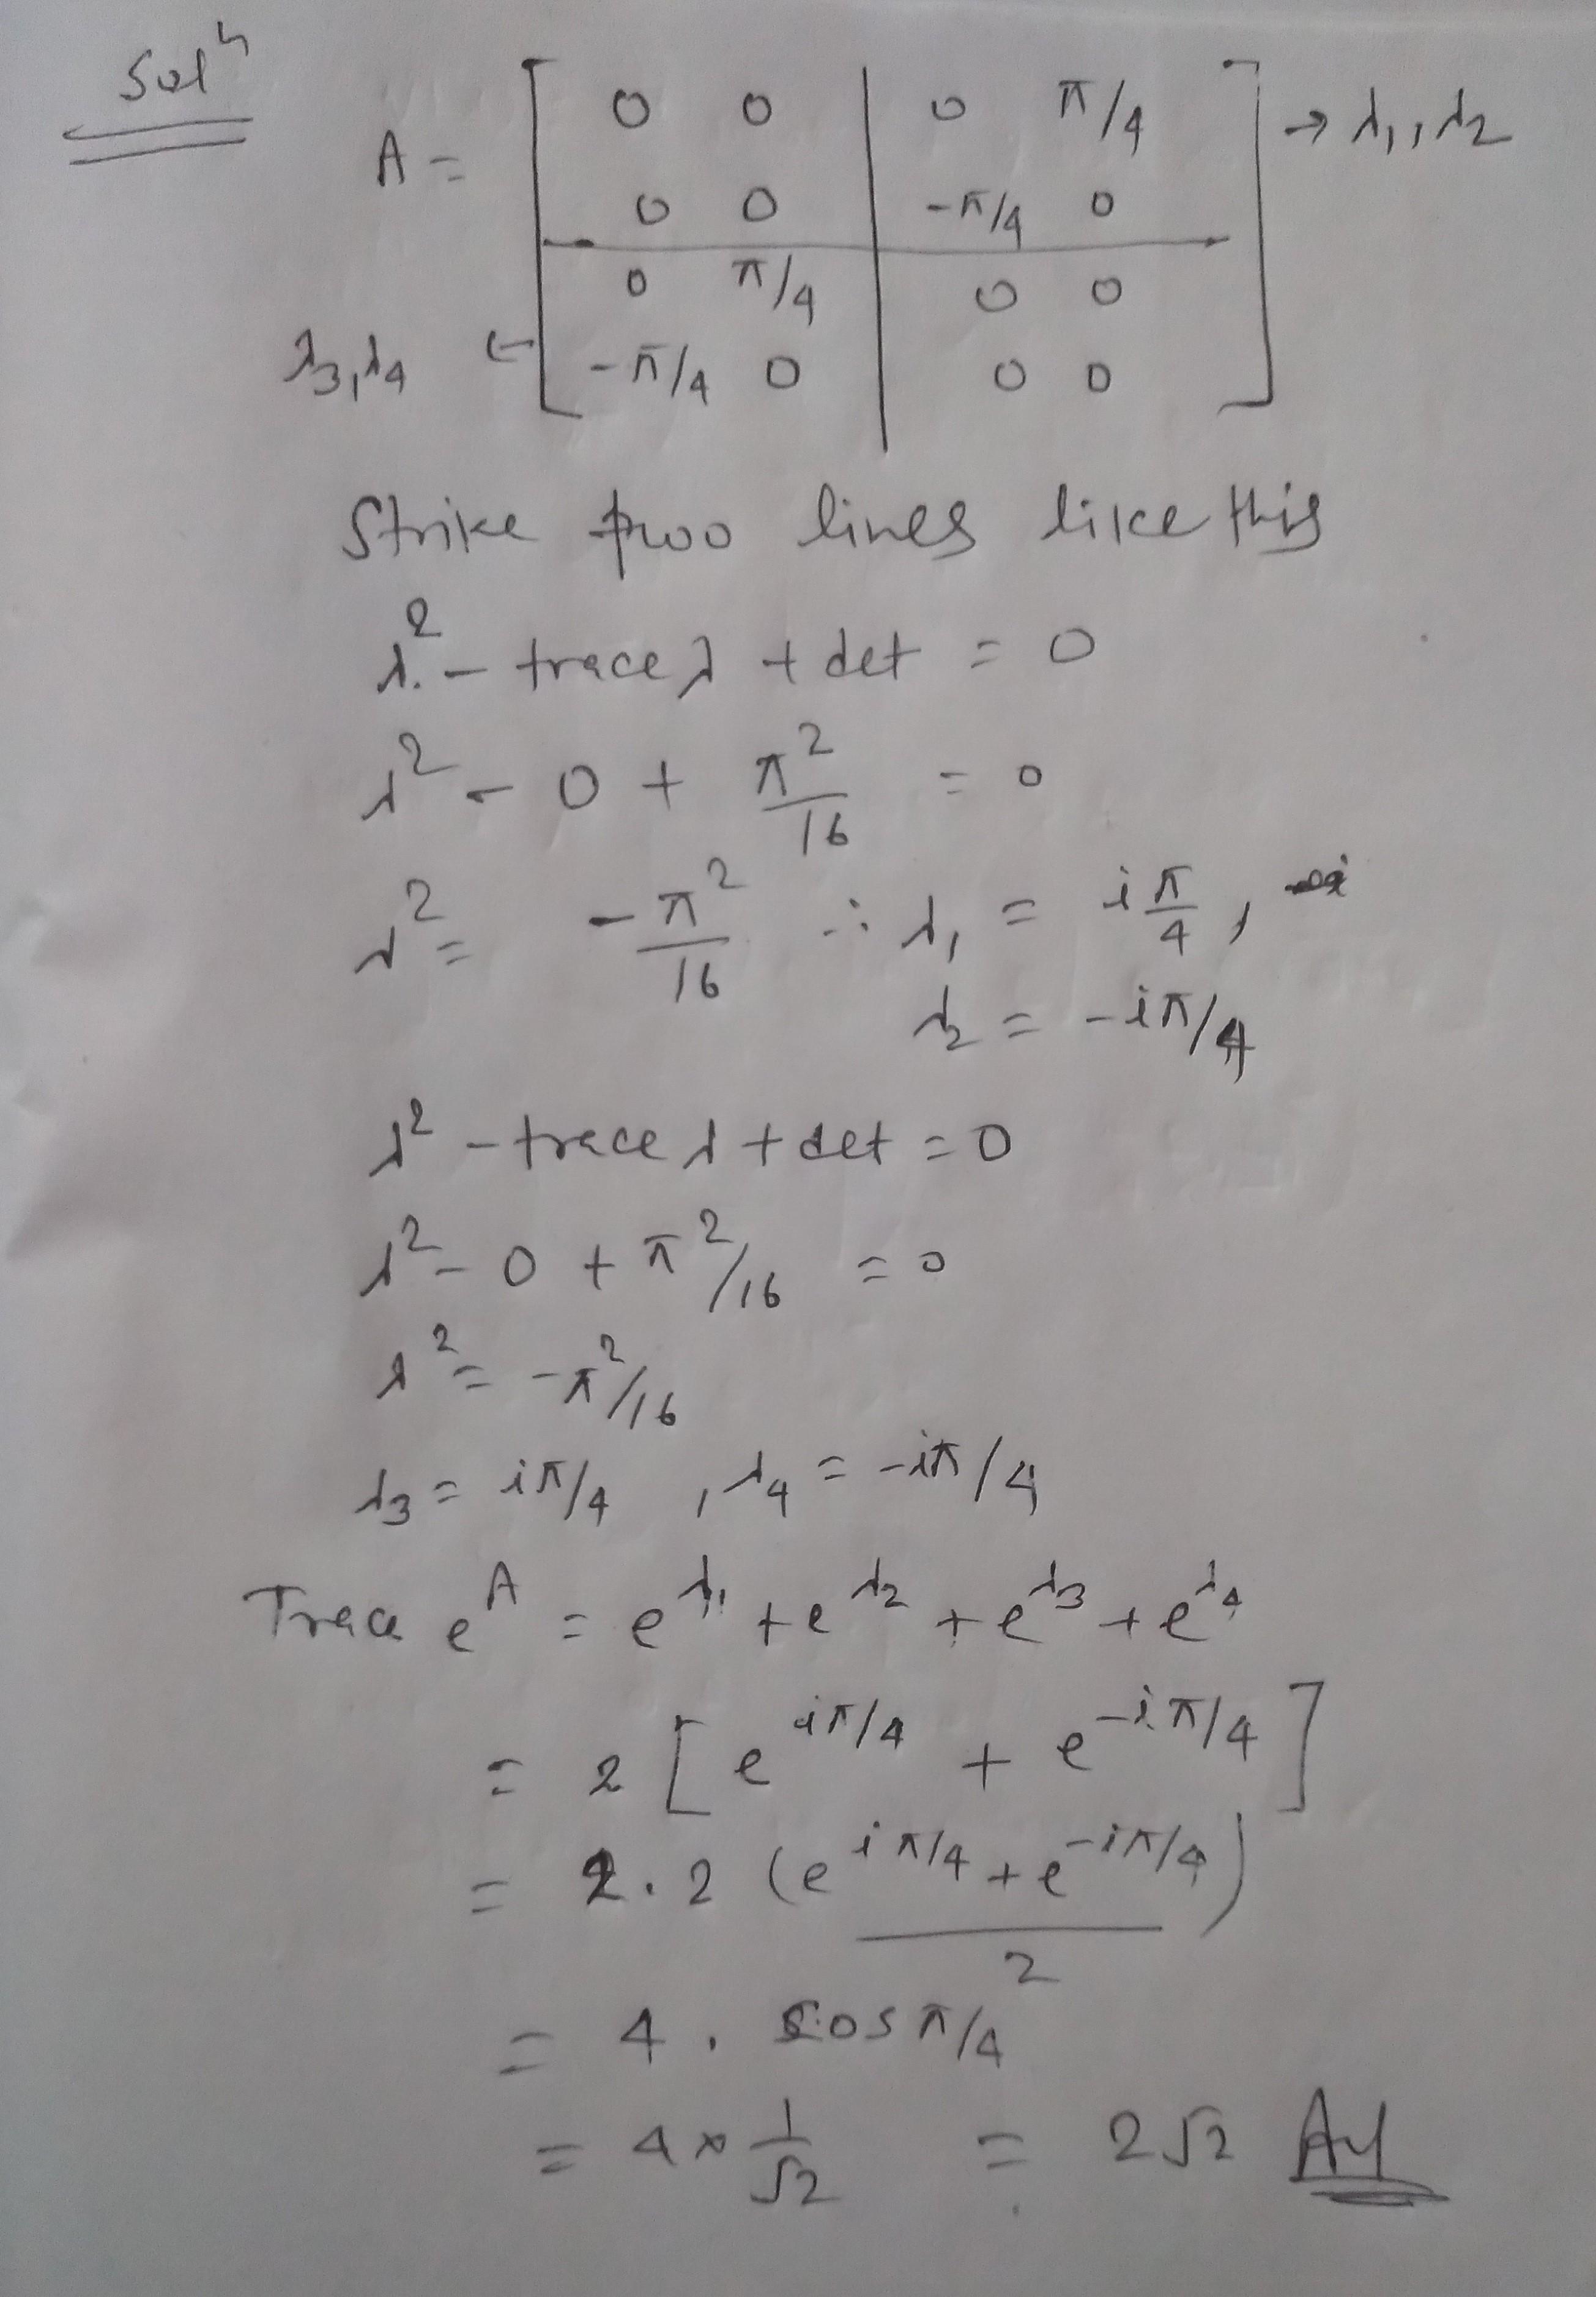 Solⁿ
A = [ 0 0 | 0 π/4 ] → λ₁, λ₂
0 0 | -π/4 0
0 π/4 | 0 0
λ₃, λ₄ ← -π/4 0 | 0 0
Strike two lines like this
λ² - trace λ + det = 0
λ² - 0 + π²/16 = 0
λ² = -π²/16 ∴ λ₁ = iπ/4,
λ₂ = -iπ/4
λ² - trace λ + det = 0
λ² - 0 + π²/16 = 0
λ² = -π²/16
λ₃ = iπ/4 , λ₄ = -iπ/4
Trace e^A = e^λ₁ + e^λ₂ + e^λ₃ + e^λ₄
= 2 [ e^iπ/4 + e^-iπ/4 ]
= 2 . 2 (e^iπ/4 + e^-iπ/4)
2
= 4 . cos π/4
= 4 × 1/√2 = 2√2 Ay